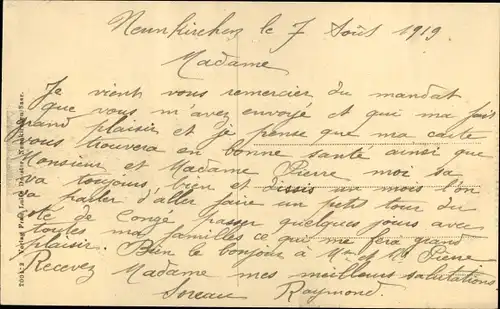 Neunkirchen le 7 Août 1919
Madame
Je vient vous remercier du mandat
que vous m'avez envoyé et qui ma fait
grand plaisir et je pense que ma carte
vous trouvera en bonne santé ainsi que
Monsieur et Madame Pierre moi sa
va toujours bien et dissis un mois l'on
va parler d'aller faire un petit tour du
côté de Congé passer quelques jours avec
toutes ma familles ce qui me fera grand
plaisir. Bien le bonjour à Mme et Mr Pierre
Recevez Madame mes meilleurs salutations
Soreau Raymond.